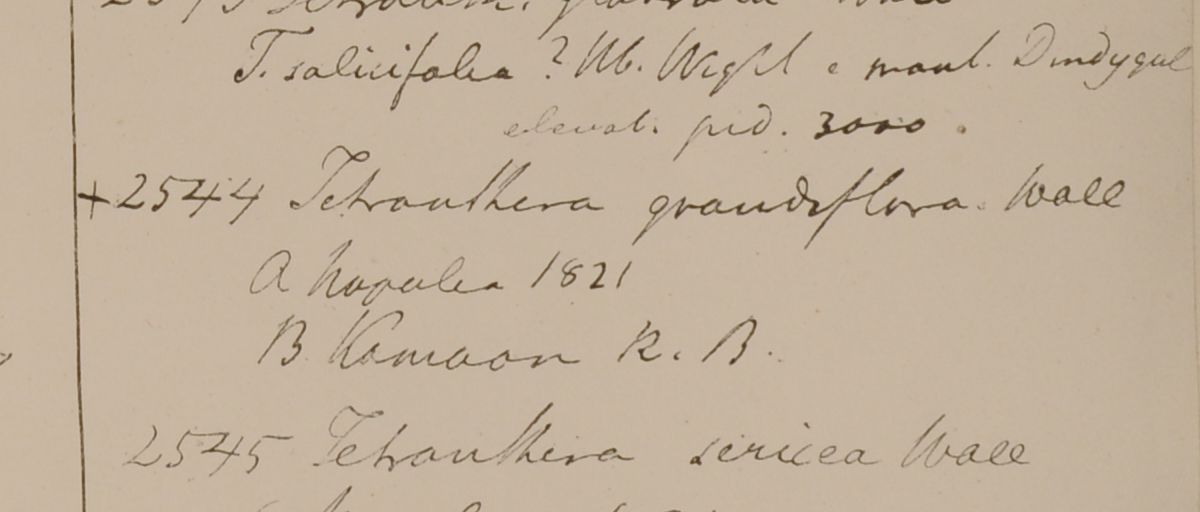 T. salicifolia ? Hb. Wight e mont. Dindygul
elevat. ped. 3000.
+ 2544 Tetranthera grandiflora. Wall
A Napalia 1821
B Kamaon R. B.
2545 Tetranthera sericea Wall